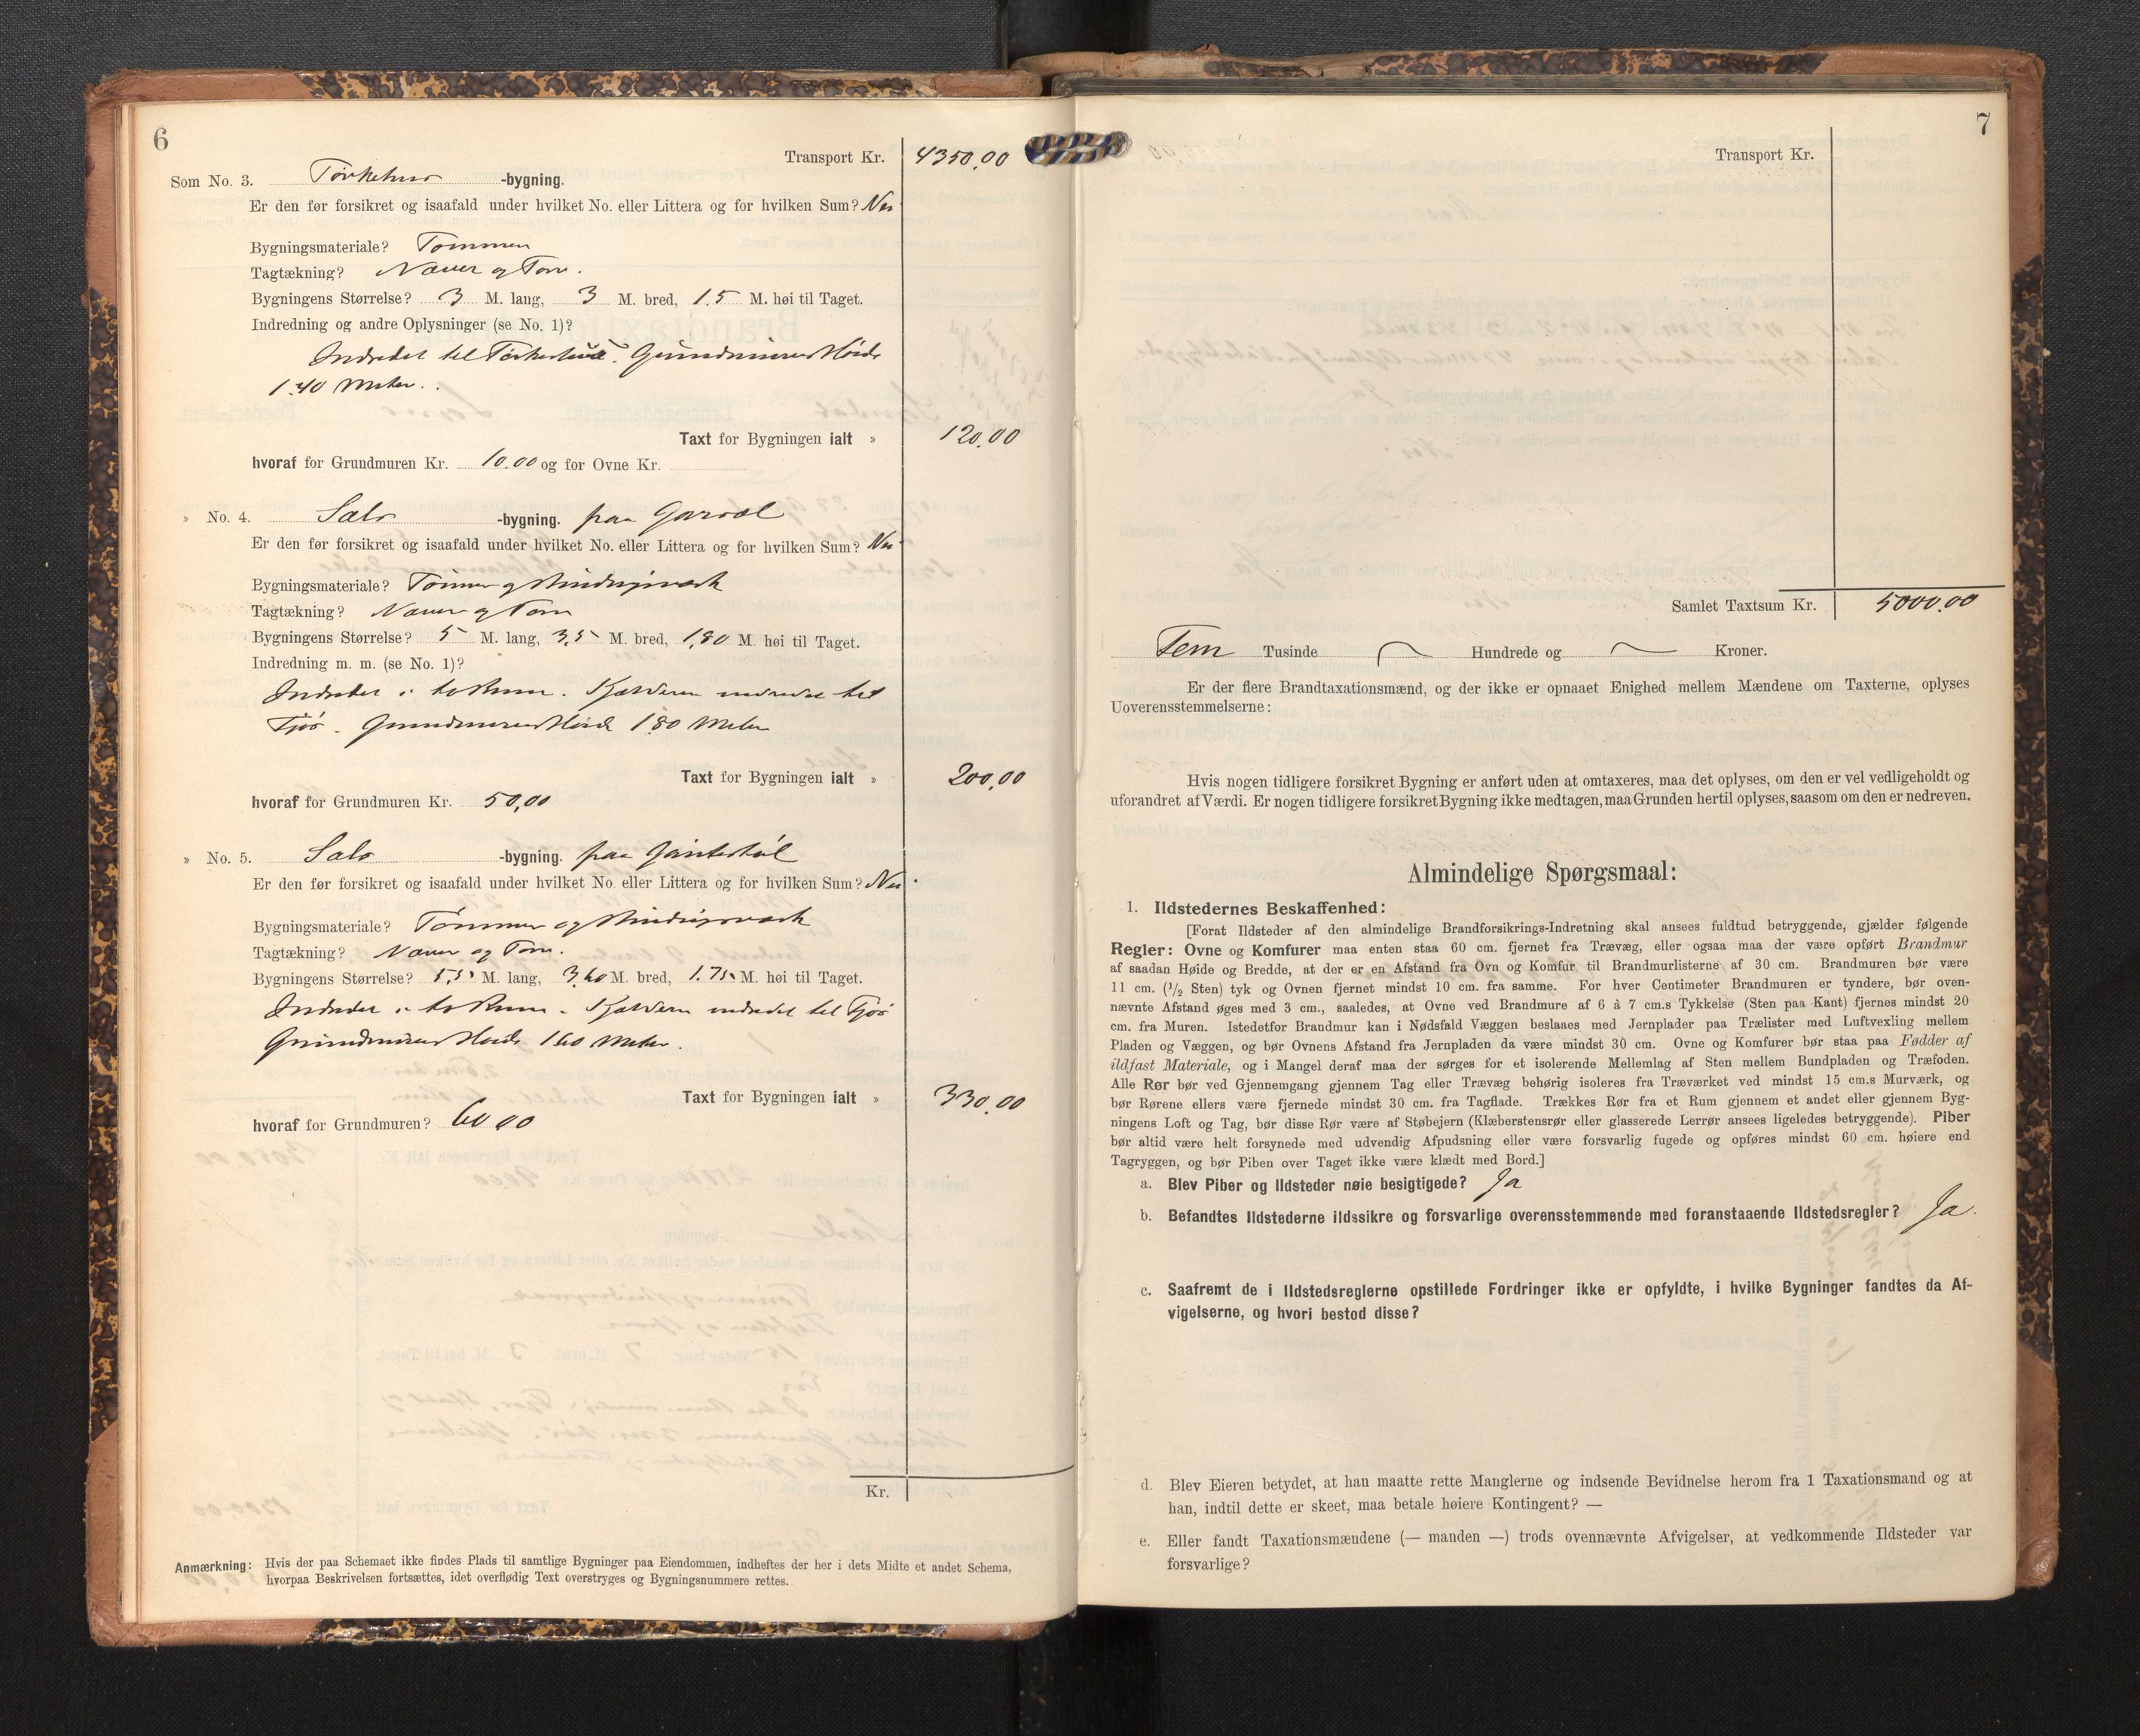 6
Transport Kr. 4350,00
Som No. 3. Törkehus -bygning.
Er den før forsikret og isaafald under hvilket No. eller Littera og for hvilken Sum? Nei
Bygningsmateriale? Tømmer
Tagtækning? Næver og Torv.
Bygningens Størrelse? 3 M. lang, 3 M. bred, 1.5 M. høi til Taget.
Indredning og andre Oplysninger (se No. 1)?
Indredet til Törkehus. Grundmurens Höide
1.40 Meter.
Taxt for Bygningen ialt » 120,00
hvoraf for Grundmuren Kr. 10.00 og for Ovne Kr.
» No. 4. Sæls -bygning. paa
Er den før forsikret og isaafald under hvilket No. eller Littera og for hvilken Sum? Nei
Bygningsmateriale? Tömmer og Bindingsværk
Tagtækning? Næver og Torv
Bygningens Størrelse? 5 M. lang, 3,5 M. bred, 1,80 M. høi til Taget.
Indredning m. m. (se No. 1)?
Indredet i to Rum. Kjælderen indredet til
Fjös. Grundmurens Höide 1.80 Meter
Taxt for Bygningen ialt » 200,00
hvoraf for Grundmuren Kr. 50,00
» No. 5. Sæls -bygning. paa
Er den før forsikret og isaafald under hvilket No. eller Littera og for hvilken Sum? Nei.
Bygningsmateriale? Tömmer og Bindingsværk
Tagtækning? Næver og Torv.
Bygningens Størrelse? 5,5 M. lang, 3,60 M. bred, 1.75 M. høi til Taget.
Indredet i to Rum. Kjælderen indredet til Fjös
Grundmurens Höide 1.60 Meter.
Taxt for Bygningen ialt » 330,00
hvoraf for Grundmuren? 60,00
Kr.
Anmærkning: Hvis der paa Schemaet ikke findes Plads til samtlige Bygninger paa Eiendommen, indheftes der her i dets Midte et andet Schema,
hvorpaa Beskrivelsen fortsættes, idet overflødig Text overstryges og Bygningsnummere rettes.
7
Transport Kr.
Samlet Taxtsum Kr. 5000,00
Fem Tusinde — Hundrede og — Kroner.
Er der flere Brandtaxationsmænd, og der ikke er opnaaet Enighed mellem Mændene om Taxterne, oplyses
Uoverensstemmelserne:
Hvis nogen tidligere forsikret Bygning er anført uden at omtaxeres, maa det oplyses, om den er vel vedligeholdt og
uforandret af Værdi. Er nogen tidligere forsikret Bygning ikke medtagen, maa Grunden hertil oplyses, saasom om den er nedreven.
Almindelige Spørgsmaal:
1. Ildstedernes Beskaffenhed:
[Forat Ildsteder af den almindelige Brandforsikrings-Indretning skal ansees fuldtud betryggende, gjælder følgende
Regler: Ovne og Komfurer maa enten staa 60 cm. fjernet fra Trævæg, eller ogsaa maa der være opført Brandmur
af saadan Høide og Bredde, at der er en Afstand fra Ovn og Komfur til Brandmurlisterne af 30 cm. Brandmuren bør være
11 cm. (1/2 Sten) tyk og Ovnen fjernet mindst 10 cm. fra samme. For hver Centimeter Brandmuren er tyndere, bør oven-
nævnte Afstand øges med 3 cm., saaledes, at Ovne ved Brandmure af 6 à 7 cm.s Tykkelse (Sten paa Kant) fjernes mindst 20
cm. fra Muren. Istedetfor Brandmur kan i Nødsfald Væggen beslaaes med Jernplader paa Trælister med Luftvexling mellem
Pladen og Væggen, og bør Ovnens Afstand fra Jernpladen da være mindst 30 cm. Ovne og Komfurer bør staa paa Fødder af
ildfast Materiale, og i Mangel deraf maa der sørges for et isolerende Mellemlag af Sten mellem Bundpladen og Træfoden.
Alle Rør bør ved Gjennemgang gjennem Tag eller Trævæg behørig isoleres fra Træværket ved mindst 15 cm.s Murværk, og
bør Rørene ellers være fjernede mindst 30 cm. fra Tagflade. Trækkes Rør fra et Rum gjennem et andet eller gjennem Byg-
ningens Loft og Tag, bør disse Rør være af Støbejern (Klæberstensrør eller glasserede Lerrør ansees ligeledes betryggende). Piber
bør altid være helt forsynede med udvendig Afpudsning eller være forsvarlig fugede og opføres mindst 60 cm. høiere end
Tagryggen, og bør Piben over Taget ikke være klædt med Bord.]
a. Blev Piber og Ildsteder nøie besigtigede? Ja
b. Befandtes Ildstederne ildssikre og forsvarlige overensstemmende med foranstaaende Ildstedsregler? Ja.
c. Saafremt de i Ildstedsreglerne opstillede Fordringer ikke er opfyldte, i hvilke Bygninger fandtes da Af-
vigelserne, og hvori bestod disse?
d. Blev Eieren betydet, at han maatte rette Manglerne og indsende Bevidnelse herom fra 1 Taxationsmand og at
han, indtil dette er skeet, maa betale høiere Kontingent? —
e. Eller fandt Taxationsmændene (— manden —) trods ovennævnte Afvigelser, at vedkommende Ildsteder var
forsvarlige?